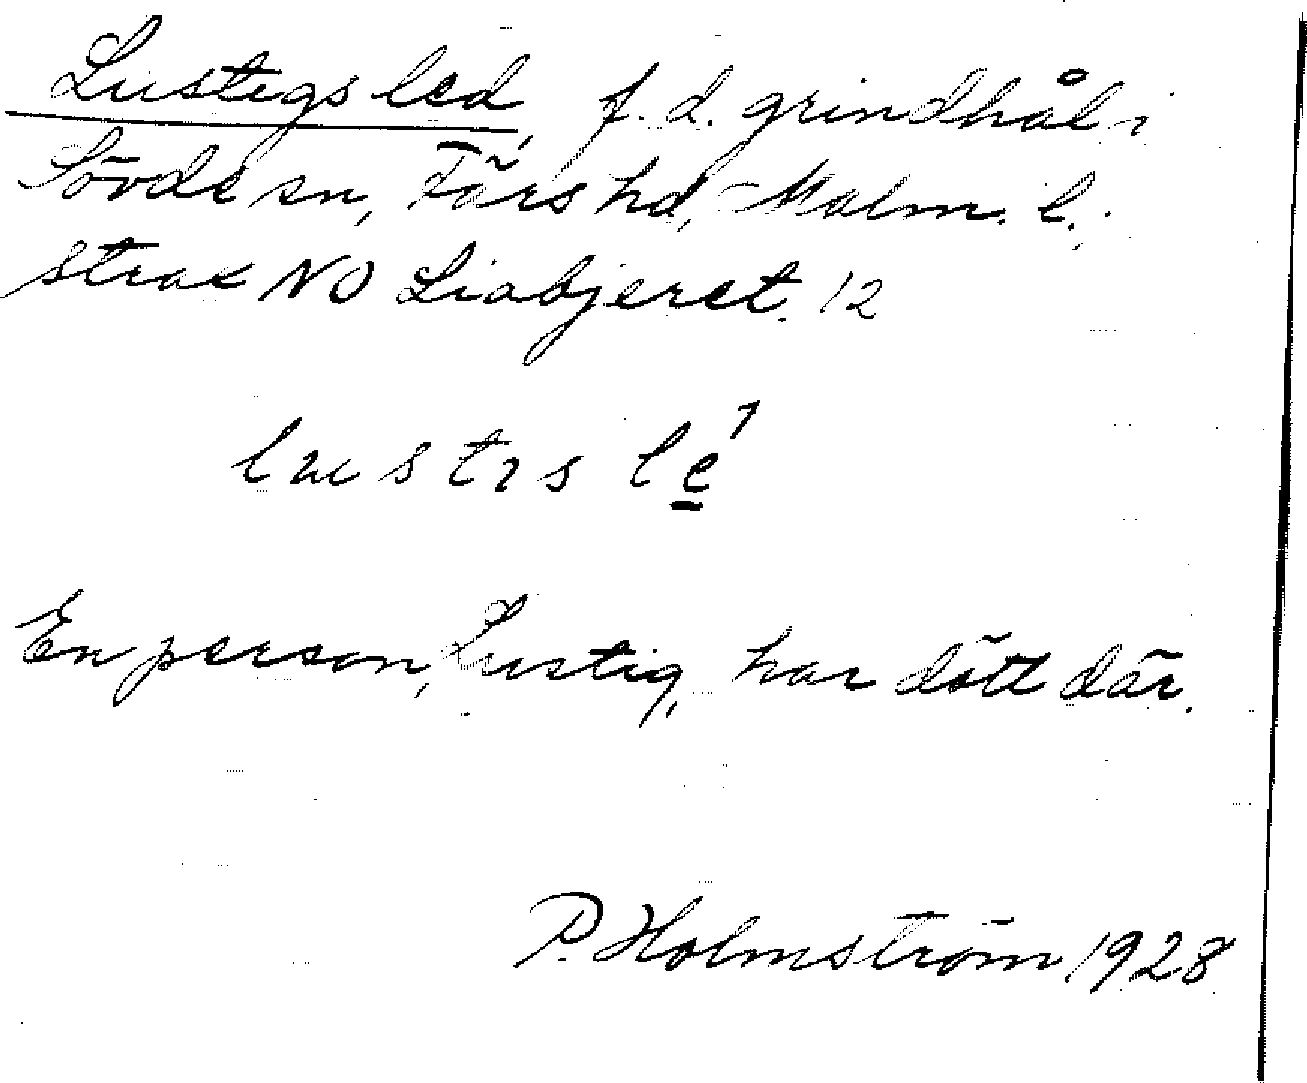 Lustigs led, f. d. grindhål i
Sövde sn, Färs hd, Malm. l.
strax NO Liabjeret. 12
lustıs le̲´
En person, Lustig, har dött där.
P. Holmström 1928